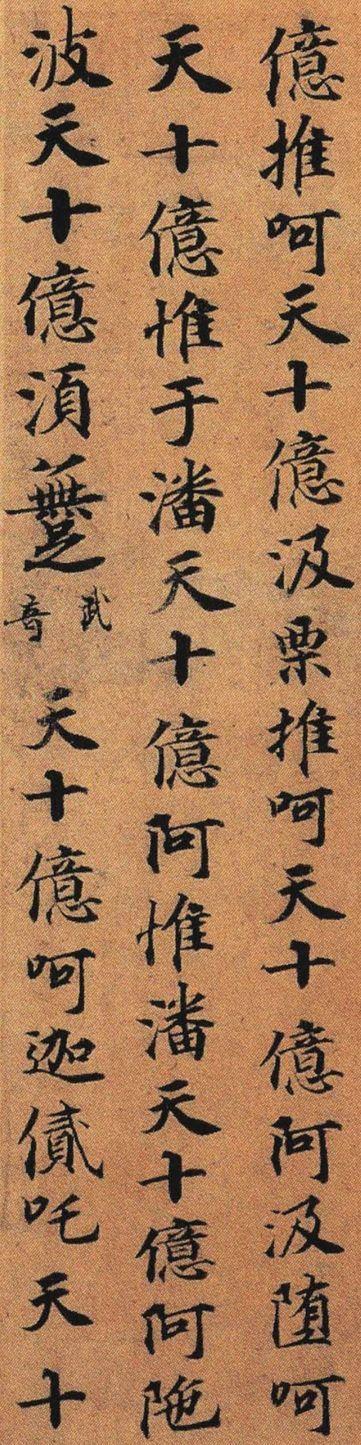 億推呵天十億汲栗推呵天十億阿汲墮呵
天十億惟于潘天十億阿惟潘天十億阿陁
波天十億須躌武音天十億呵迦貳吒天十